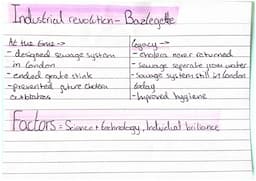 Industrial revolution - Bazlegette
At the time ->
- designed sewage system
in London
- ended great stink
- prevented future cholera
outbreaks
Legacy ->
- cholera never returned
- sewage seperate from water
- sewage system still in London
today
- Improved hygiene
Factors = Science + technology, Individual brilliance